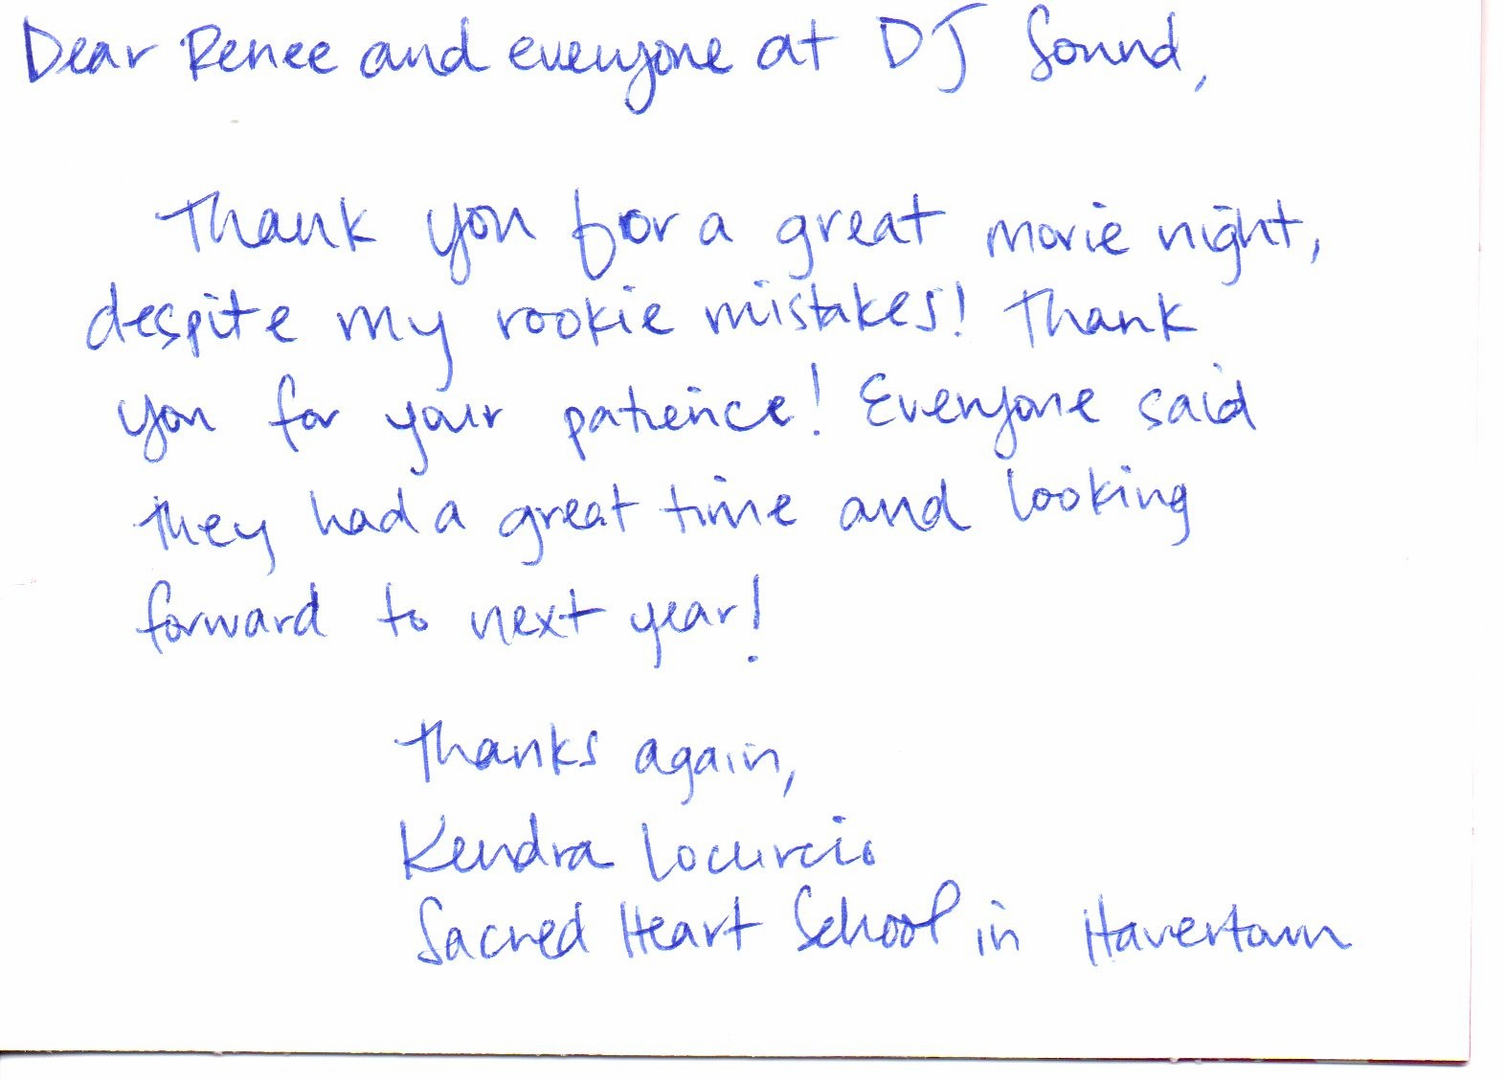 Dear Renee and everyone at DJ Sound,
Thank you for a great movie night,
despite my rookie mistakes! Thank
you for your patience! Everyone said
they had a great time and looking
forward to next year!
Thanks again,
Kendra Locurcio
Sacred Heart School in Havertown